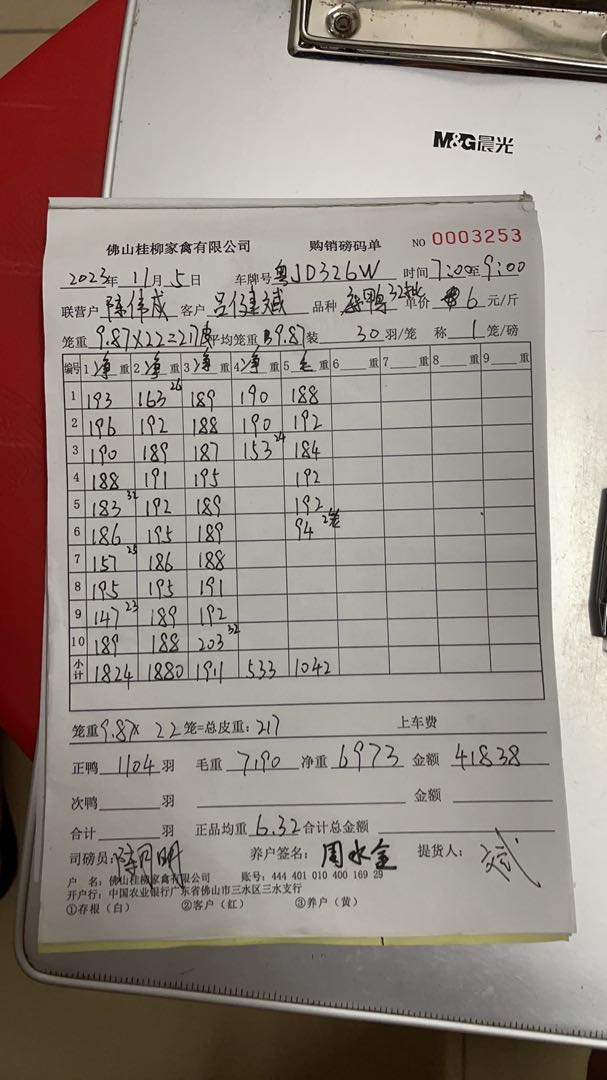 M&G晨光
佛山桂柳家禽有限公司 购销磅码单 NO 0003253
2023年 11月 5日 车牌号 粤JD326W 时间 7:00至9:00
联营户 陈伟成 客户 吕 斌 品种 鸭32 单价 6 元/斤
笼重 9.87×22=217 平均笼重 9.87 装 30 羽/笼 称 1 笼/磅
编号 1 净 重 2 净 重 3 净 重 4 净 重 5 毛 重 6 重 7 重 8 重 9 重
1 193 163 26 189 190 188
2 196 192 188 190 192
3 190 189 187 153 24 184
4 188 191 195 192
5 183 32 192 189 192
6 186 195 189 94 2笼
7 157 25 186 188
8 195 195 191
9 147 23 189 192
10 189 188 203 32
小计 1824 1880 1911 533 1042
笼重 9.87× 22 笼=总皮重: 217 上车费
正鸭 1104 羽 毛重 7190 净重 6973 金额 41838
次鸭 羽 金额
合计 羽 正品均重 6.32 合计总金额
司磅员: 明 养户签名: 周水金 提货人: 斌
户 名: 佛山桂柳家禽有限公司 账号: 444 401 010 400 169 29
开户行: 中国农业银行广东省佛山市三水区三水支行
①存根(白) ②客户(红) ③养户(黄)